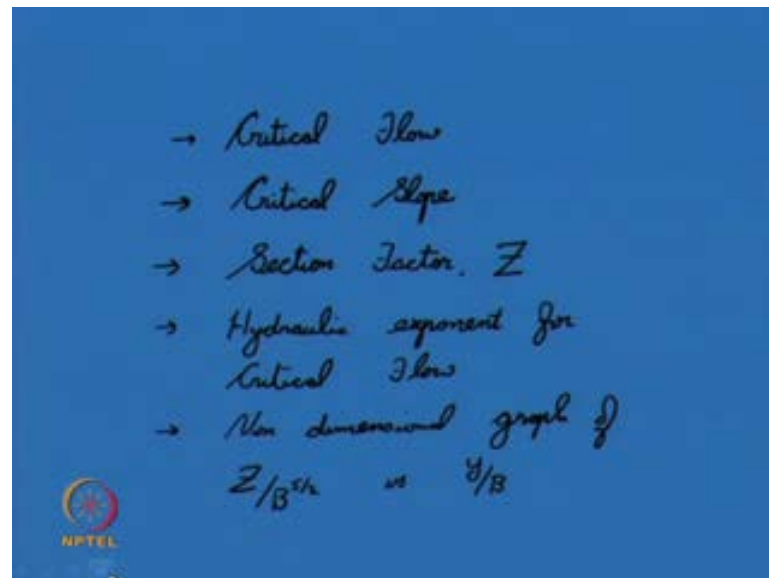 → Critical Flow
→ Critical Slope
→ Section Factor. Z
→ Hydraulic exponent for
Critical Flow
→ Non dimensional graph of
Z/B^5/2 vs y/B
NPTEL